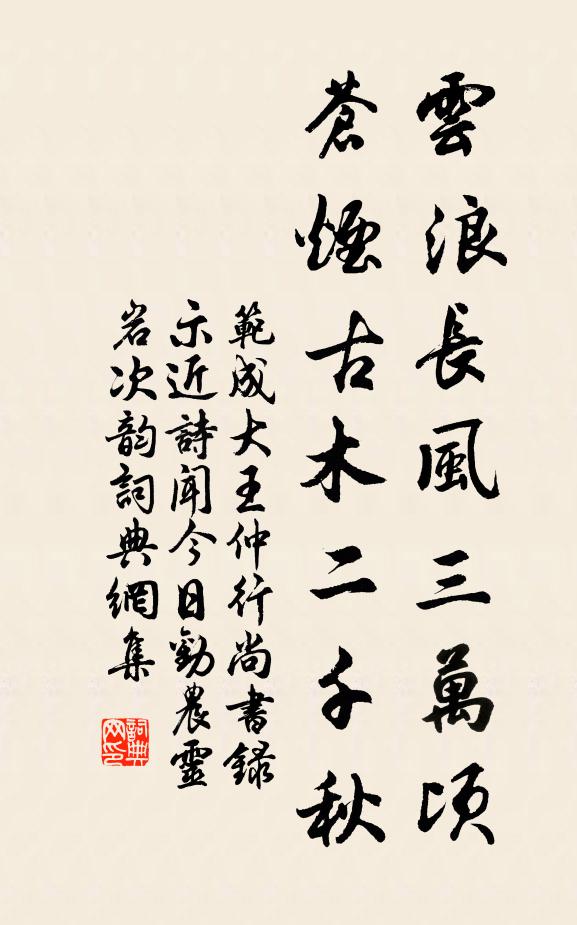 雲浪長風三萬頃
蒼煙古木二千秋
範成大王仲行尚書錄
示近詩聞今日勸農靈
岩次韵詞典網集
詞典
网印